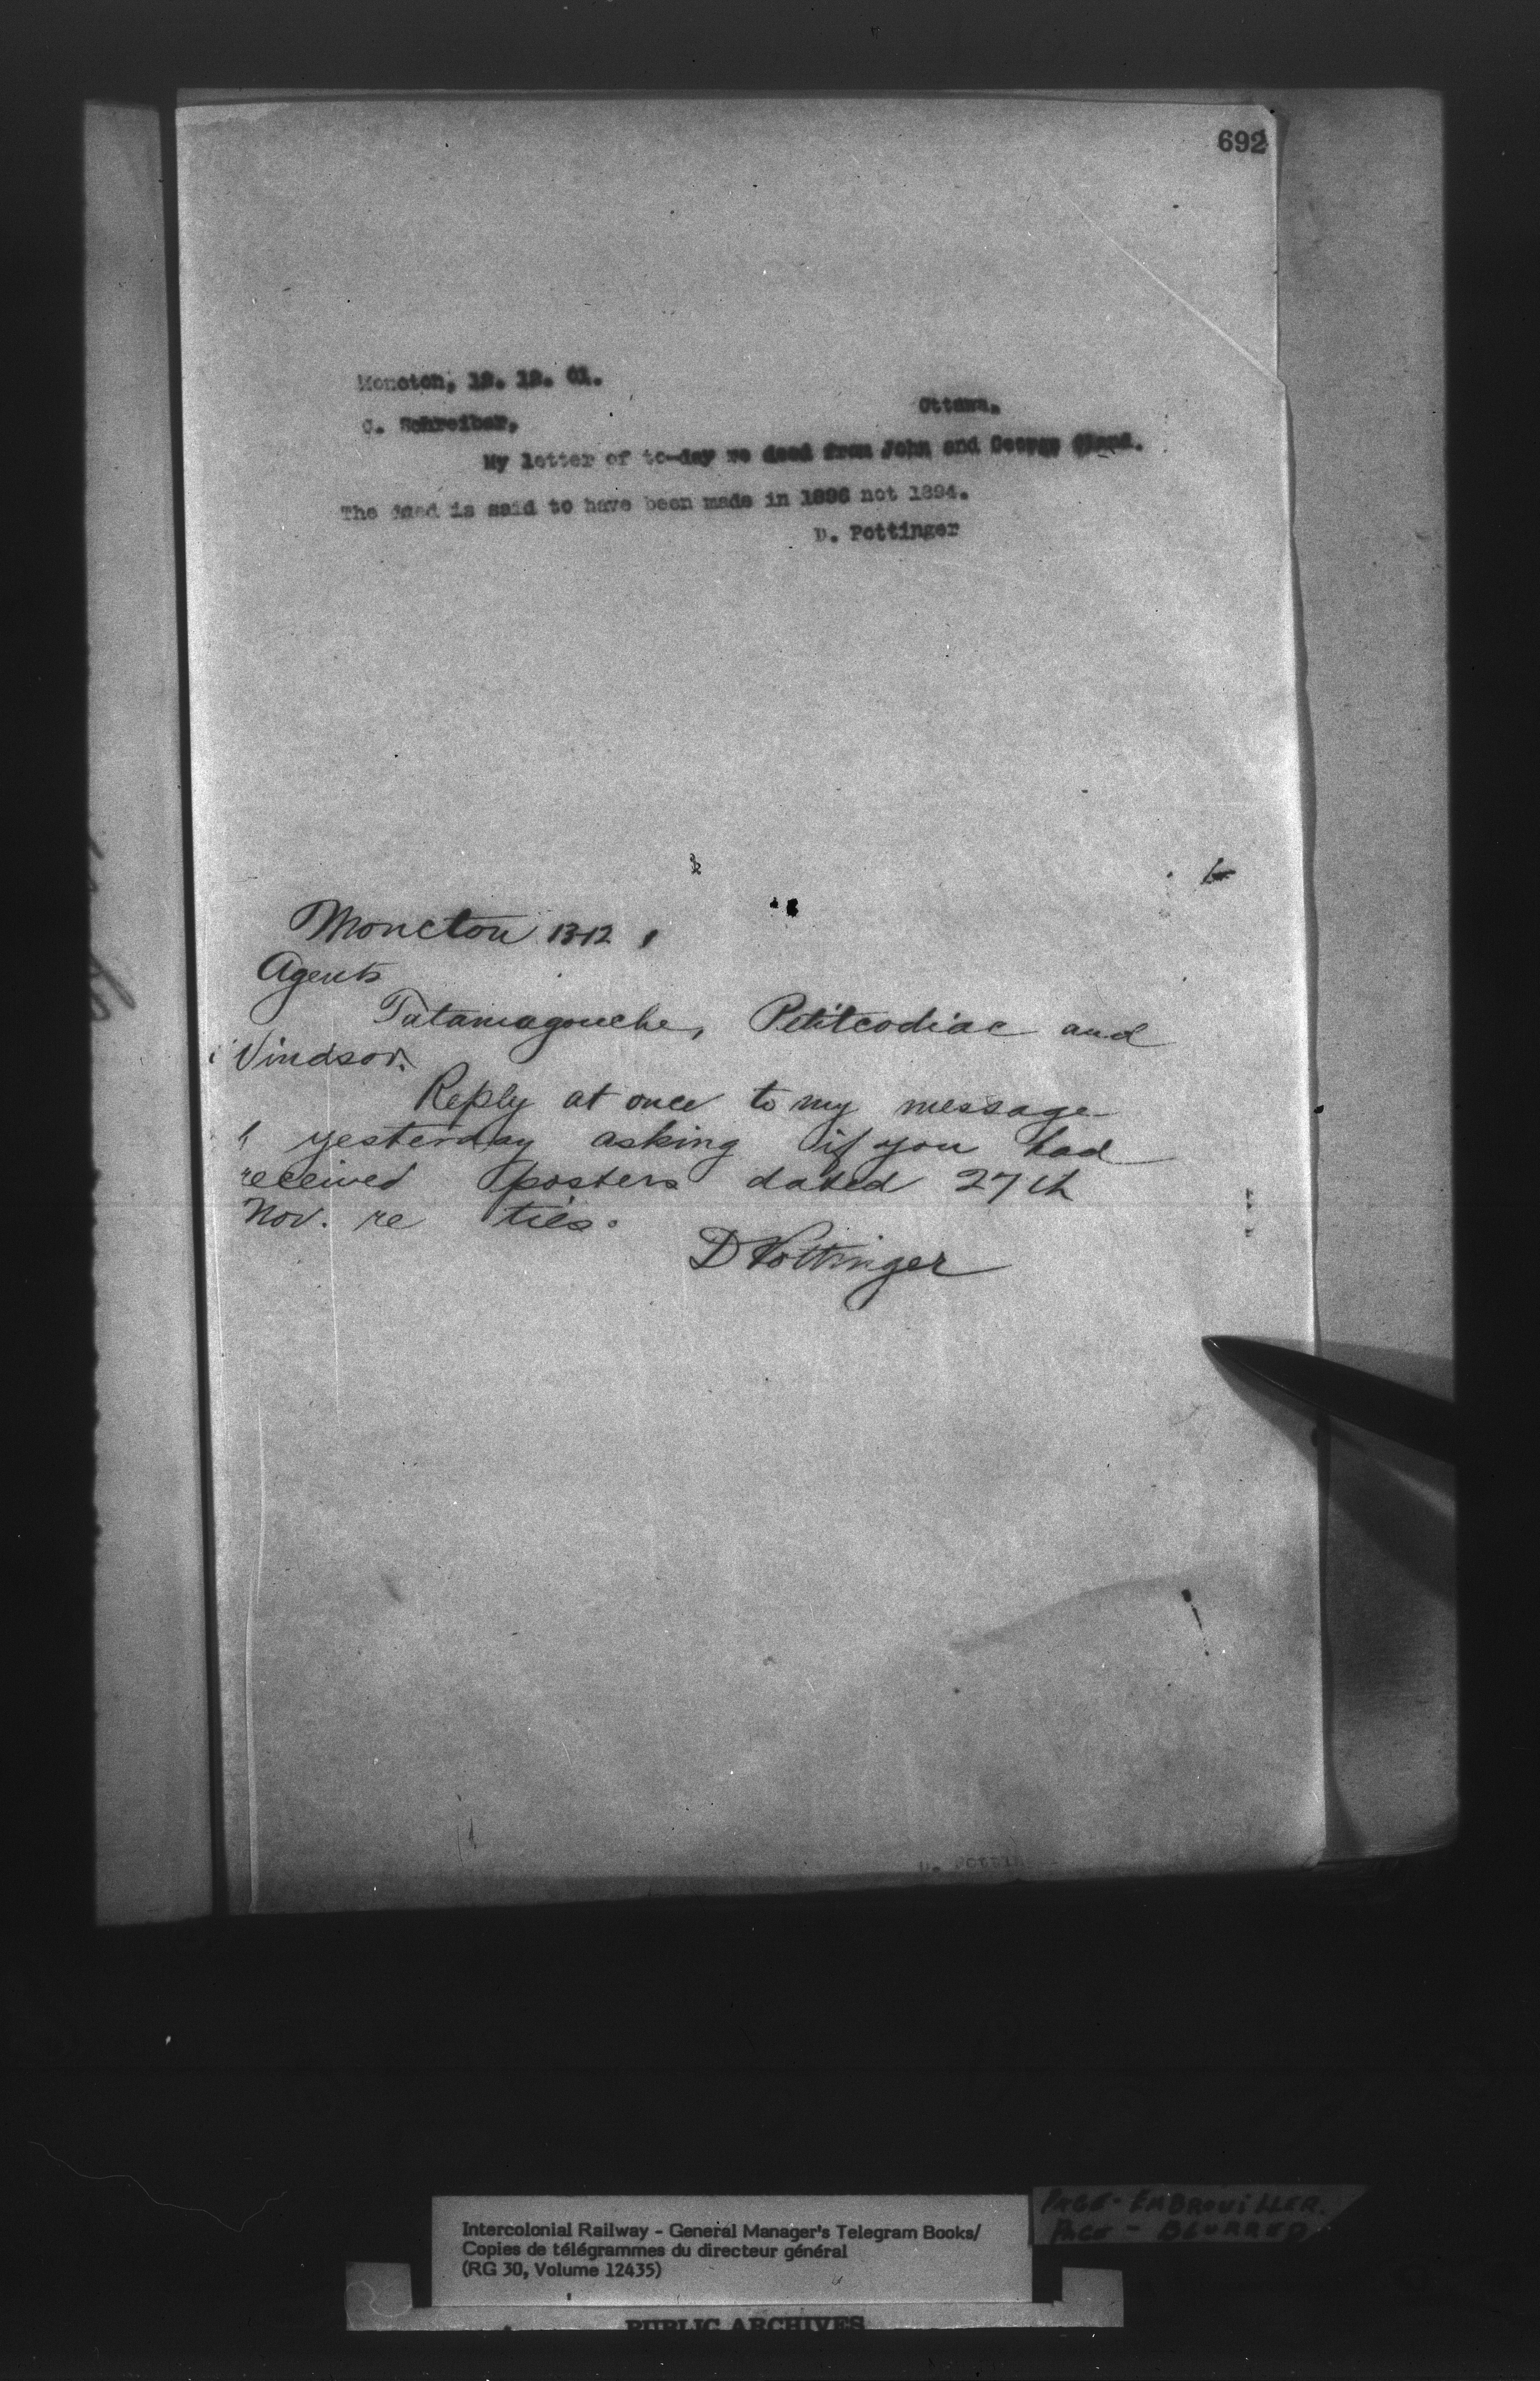 692
Moncton, 12. 12. 01.
Ottawa.
C. Schreiber,
My letter of to-day re deed from John and George
The deed is said to have been made in 1896 not 1894.
D. Pottinger
Moncton 13-12
Agents
Tatamagouche, Petitcodiac and
Windsor.
Reply at once to my message
yesterday asking if you had
received posters dated 27th
Nov. re ties.
D Pottinger
Intercolonial Railway - General Manager's Telegram Books/
Copies de télégrammes du directeur général
(RG 30, Volume 12435)
PAGE - EMBROUILLER.
PAGE - BLURRED
PUBLIC ARCHIVES